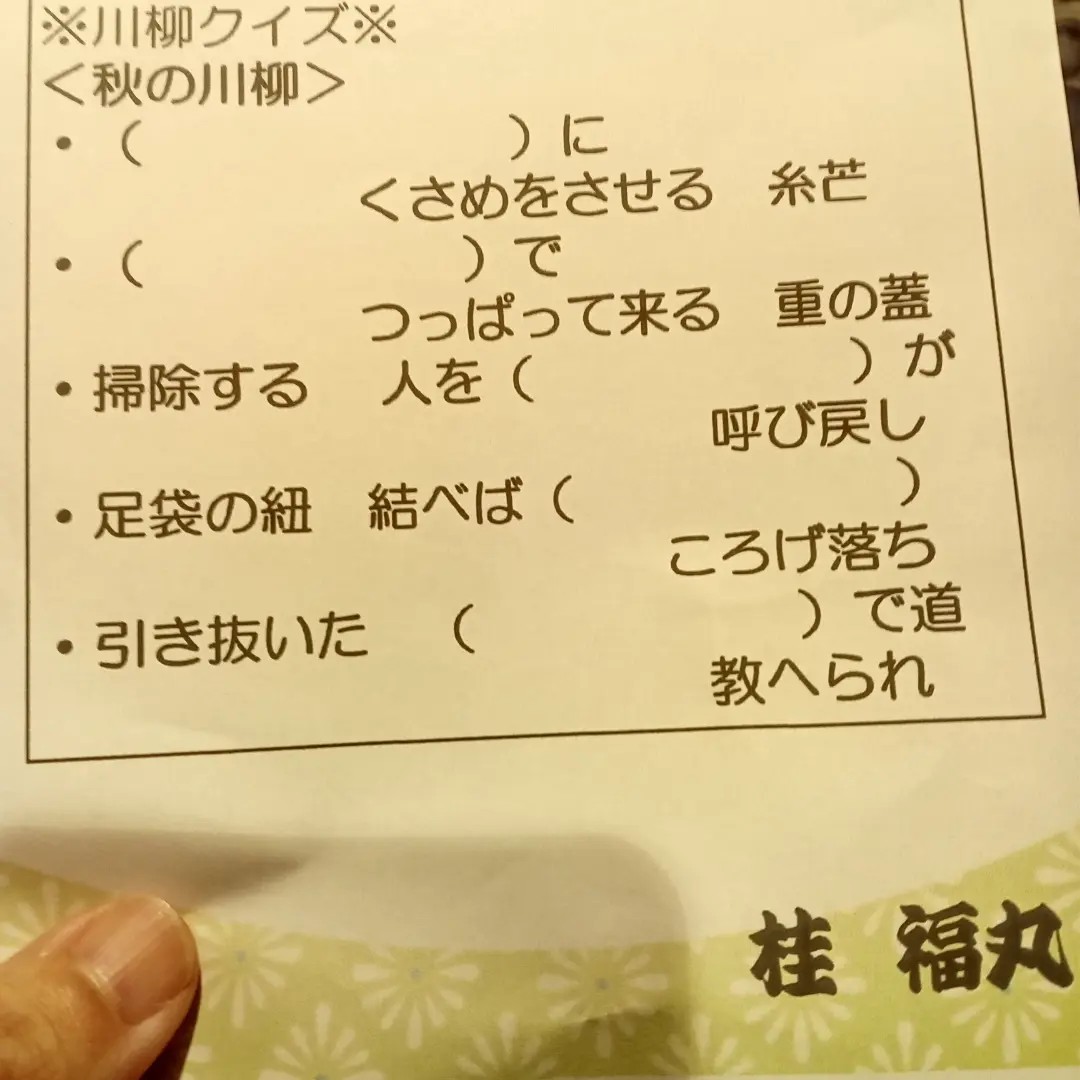 ※川柳クイズ※
＜秋の川柳＞
・（　　　　　　）に
くさめをさせる　糸芒
・（　　　　　）で
つっぱって来る　重の蓋
・掃除する　人を（　　　　　）が
呼び戻し
・足袋の紐　結べば（　　　　　）
ころげ落ち
・引き抜いた　（　　　　　）で道
教へられ
桂 福丸